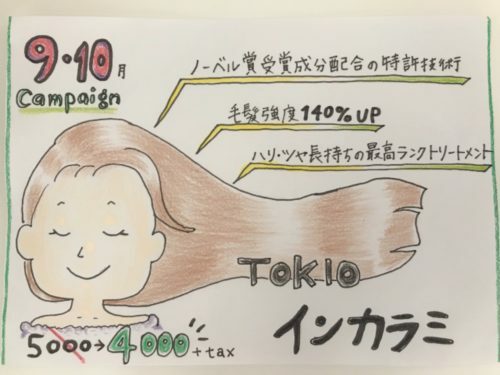 9・10月
Campaign
ノーベル賞受賞成分配合の特許技術
毛髪強度140%UP
ハリ・ツヤ長持ちの最高ランクトリートメント
TOKIO
インカラミ
5000→4000+tax